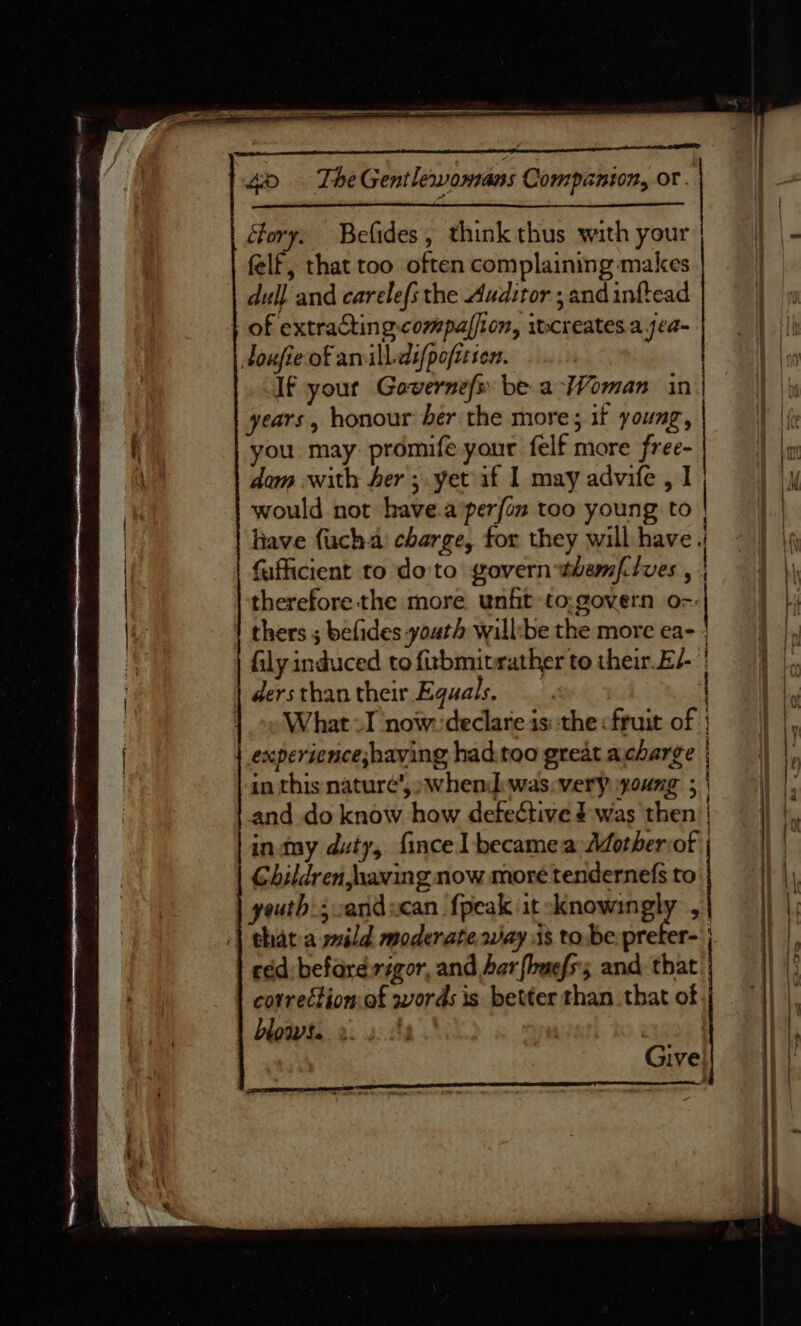 40 The Gentlewomans Companion, or
ctory. Beſides, think thus with your
ſelf, that too often complaining makes
dull and careleſs the Auditor; and inſtead
of extracting compaſſion, it creates a jea-
louſie of an ill diſpoſition.
If your Governeſs be a Woman in
years, honour her the more; if young,
you may promiſe your ſelf more free-
dom with her; yet if I may adviſe, I
would not have a perſon too young to
have ſuch a charge, for they will have
ſufficient to do to govern themſelves,
therefore the more unfit to govern o-
thers; beſides youth will be the more ea-
ſily induced to ſubmit rather to their El-
ders than their Equals.
What I now declare is the fruit of
experience, having had too great a charge
in this nature, when I was very young;
and do know how defective I was then
in my duty, ſince I became a Mother of
Children, having now more tenderneſs to
youth; and can ſpeak it knowingly,
that a mild moderate way is to be prefer-
red before rigor, and harſhneſs; and that
correction of words is better than that of
blows.
Give